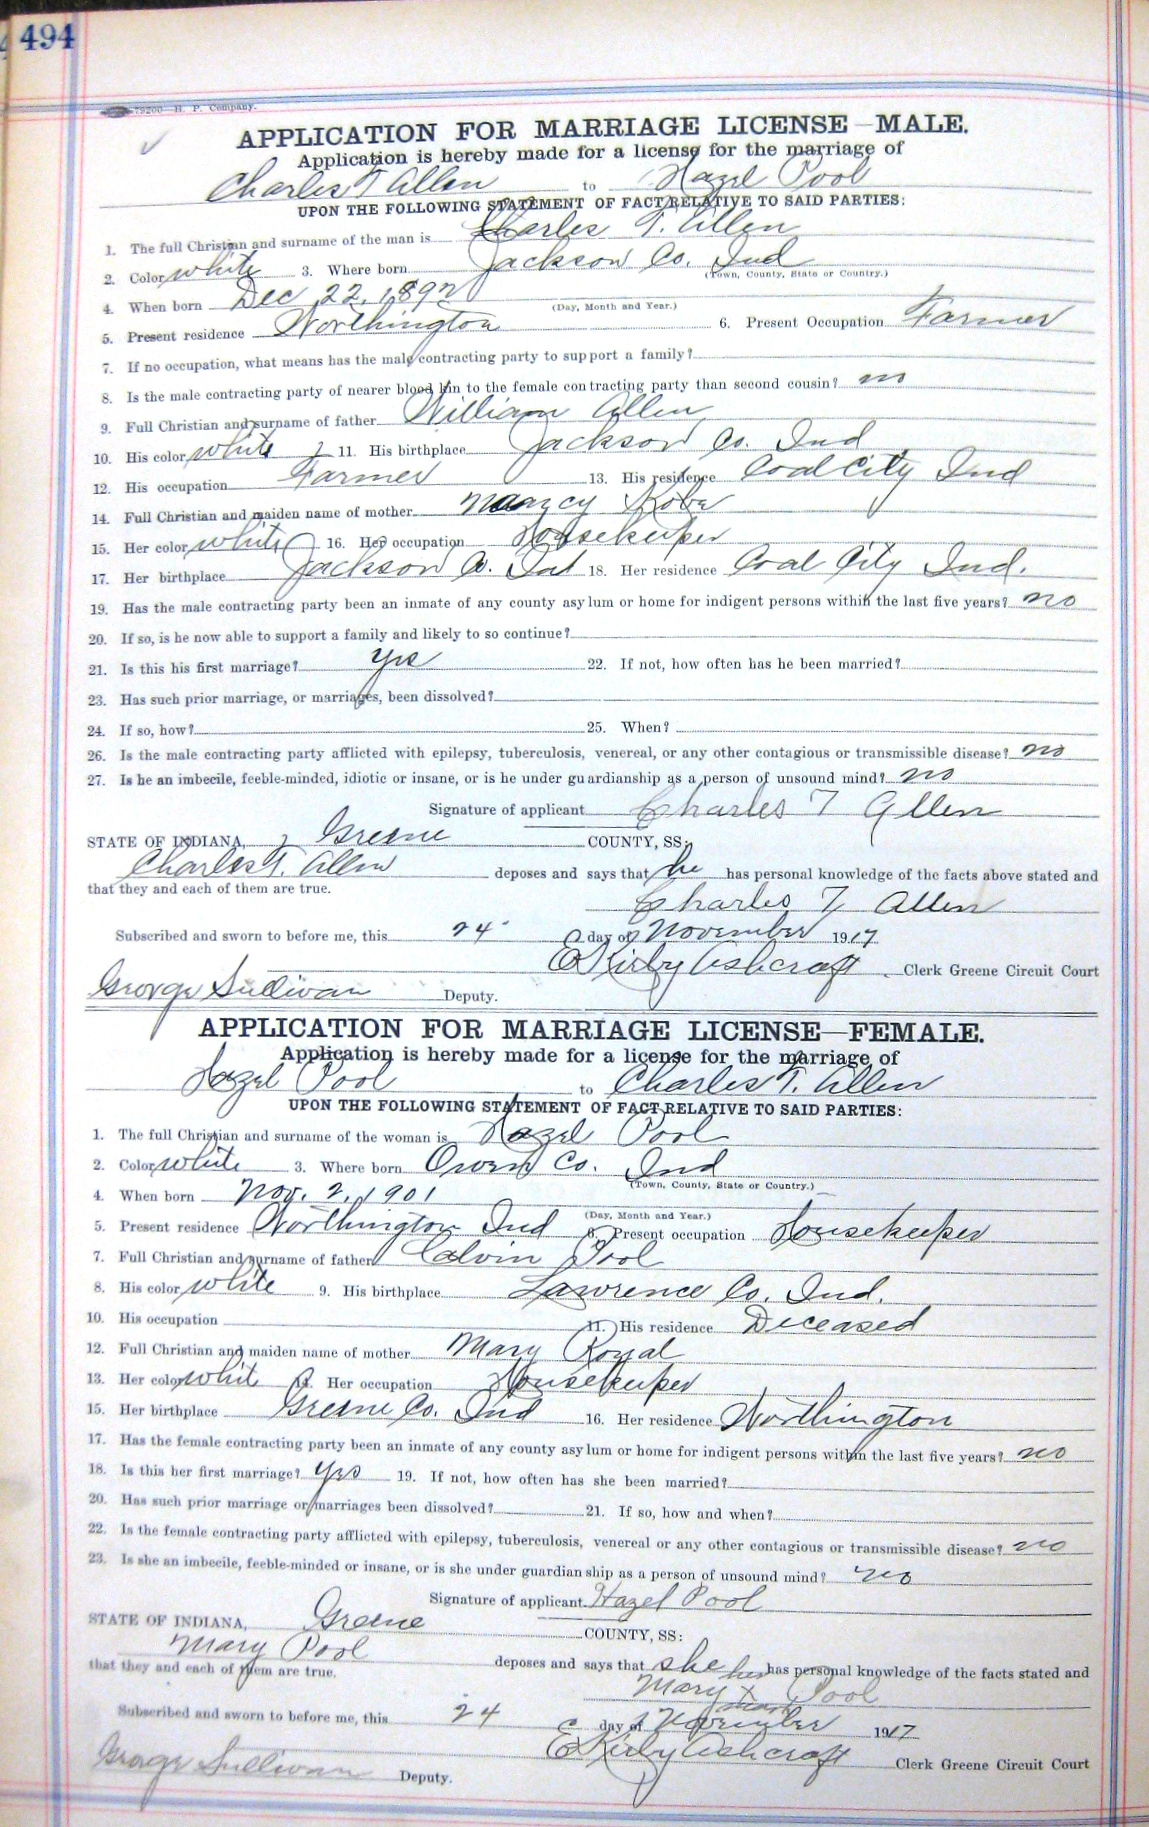 494
79200 H. P. Company.
APPLICATION FOR MARRIAGE LICENSE—MALE.
Application is hereby made for a license for the marriage of
Charles T Allen to Hazel Pool
UPON THE FOLLOWING STATEMENT OF FACT RELATIVE TO SAID PARTIES:
1. The full Christian and surname of the man is Charles T. Allen
2. Color white 3. Where born Jackson Co. Ind
(Town, County, State or Country.)
4. When born Dec 22, 1892
(Day, Month and Year.)
5. Present residence Worthington 6. Present Occupation Farmer
7. If no occupation, what means has the male contracting party to support a family?
8. Is the male contracting party of nearer blood kin to the female contracting party than second cousin? no
9. Full Christian and surname of father William Allen
10. His color white 11. His birthplace Jackson Co. Ind
12. His occupation Farmer 13. His residence Coal City Ind
14. Full Christian and maiden name of mother Nancy
15. Her color white 16. Her occupation Housekeeper
17. Her birthplace Jackson Co. Ind 18. Her residence Coal City Ind.
19. Has the male contracting party been an inmate of any county asylum or home for indigent persons within the last five years? no
20. If so, is he now able to support a family and likely to so continue?
21. Is this his first marriage? yes 22. If not, how often has he been married?
23. Has such prior marriage, or marriages, been dissolved?
24. If so, how? 25. When?
26. Is the male contracting party afflicted with epilepsy, tuberculosis, venereal, or any other contagious or transmissible disease? no
27. Is he an imbecile, feeble-minded, idiotic or insane, or is he under guardianship as a person of unsound mind? no
Signature of applicant Charles T Allen
STATE OF INDIANA, Greene COUNTY, SS:
Charles T. Allen deposes and says that he has personal knowledge of the facts above stated and
that they and each of them are true.
Charles T, Allen
Subscribed and sworn to before me, this 24 day of November 1917
E Kirby Ashcraft Clerk Greene Circuit Court
George Sullivan Deputy.
APPLICATION FOR MARRIAGE LICENSE—FEMALE.
Application is hereby made for a license for the marriage of
Hazel Pool to Charles T. Allen
UPON THE FOLLOWING STATEMENT OF FACT RELATIVE TO SAID PARTIES:
1. The full Christian and surname of the woman is Hazel Pool
2. Color white 3. Where born Owen Co. Ind
(Town, County, State or Country.)
4. When born Nov. 2, 1901
(Day, Month and Year.)
5. Present residence Worthington Ind 6. Present occupation Housekeeper
7. Full Christian and surname of father Calvin Pool
8. His color white 9. His birthplace Lawrence Co. Ind.
10. His occupation 11. His residence Deceased
12. Full Christian and maiden name of mother Mary Royal
13. Her color whit 14. Her occupation Housekeeper
15. Her birthplace Greene Co. Ind 16. Her residence Worthington
17. Has the female contracting party been an inmate of any county asylum or home for indigent persons within the last five years? no
18. Is this her first marriage? yes 19. If not, how often has she been married?
20. Has such prior marriage or marriages been dissolved? 21. If so, how and when?
22. Is the female contracting party afflicted with epilepsy, tuberculosis, venereal or any other contagious or transmissible disease? no
23. Is she an imbecile, feeble-minded or insane, or is she under guardianship as a person of unsound mind? no
Signature of applicant Hazel Pool
STATE OF INDIANA, Greene COUNTY, SS:
Mary Pool deposes and says that she has personal knowledge of the facts stated and
that they and each of them are true.
her
Mary X Pool
mark
Subscribed and sworn to before me, this 24 day of November 1917
E Kirby Ashcraft Clerk Greene Circuit Court
George Sullivan Deputy.